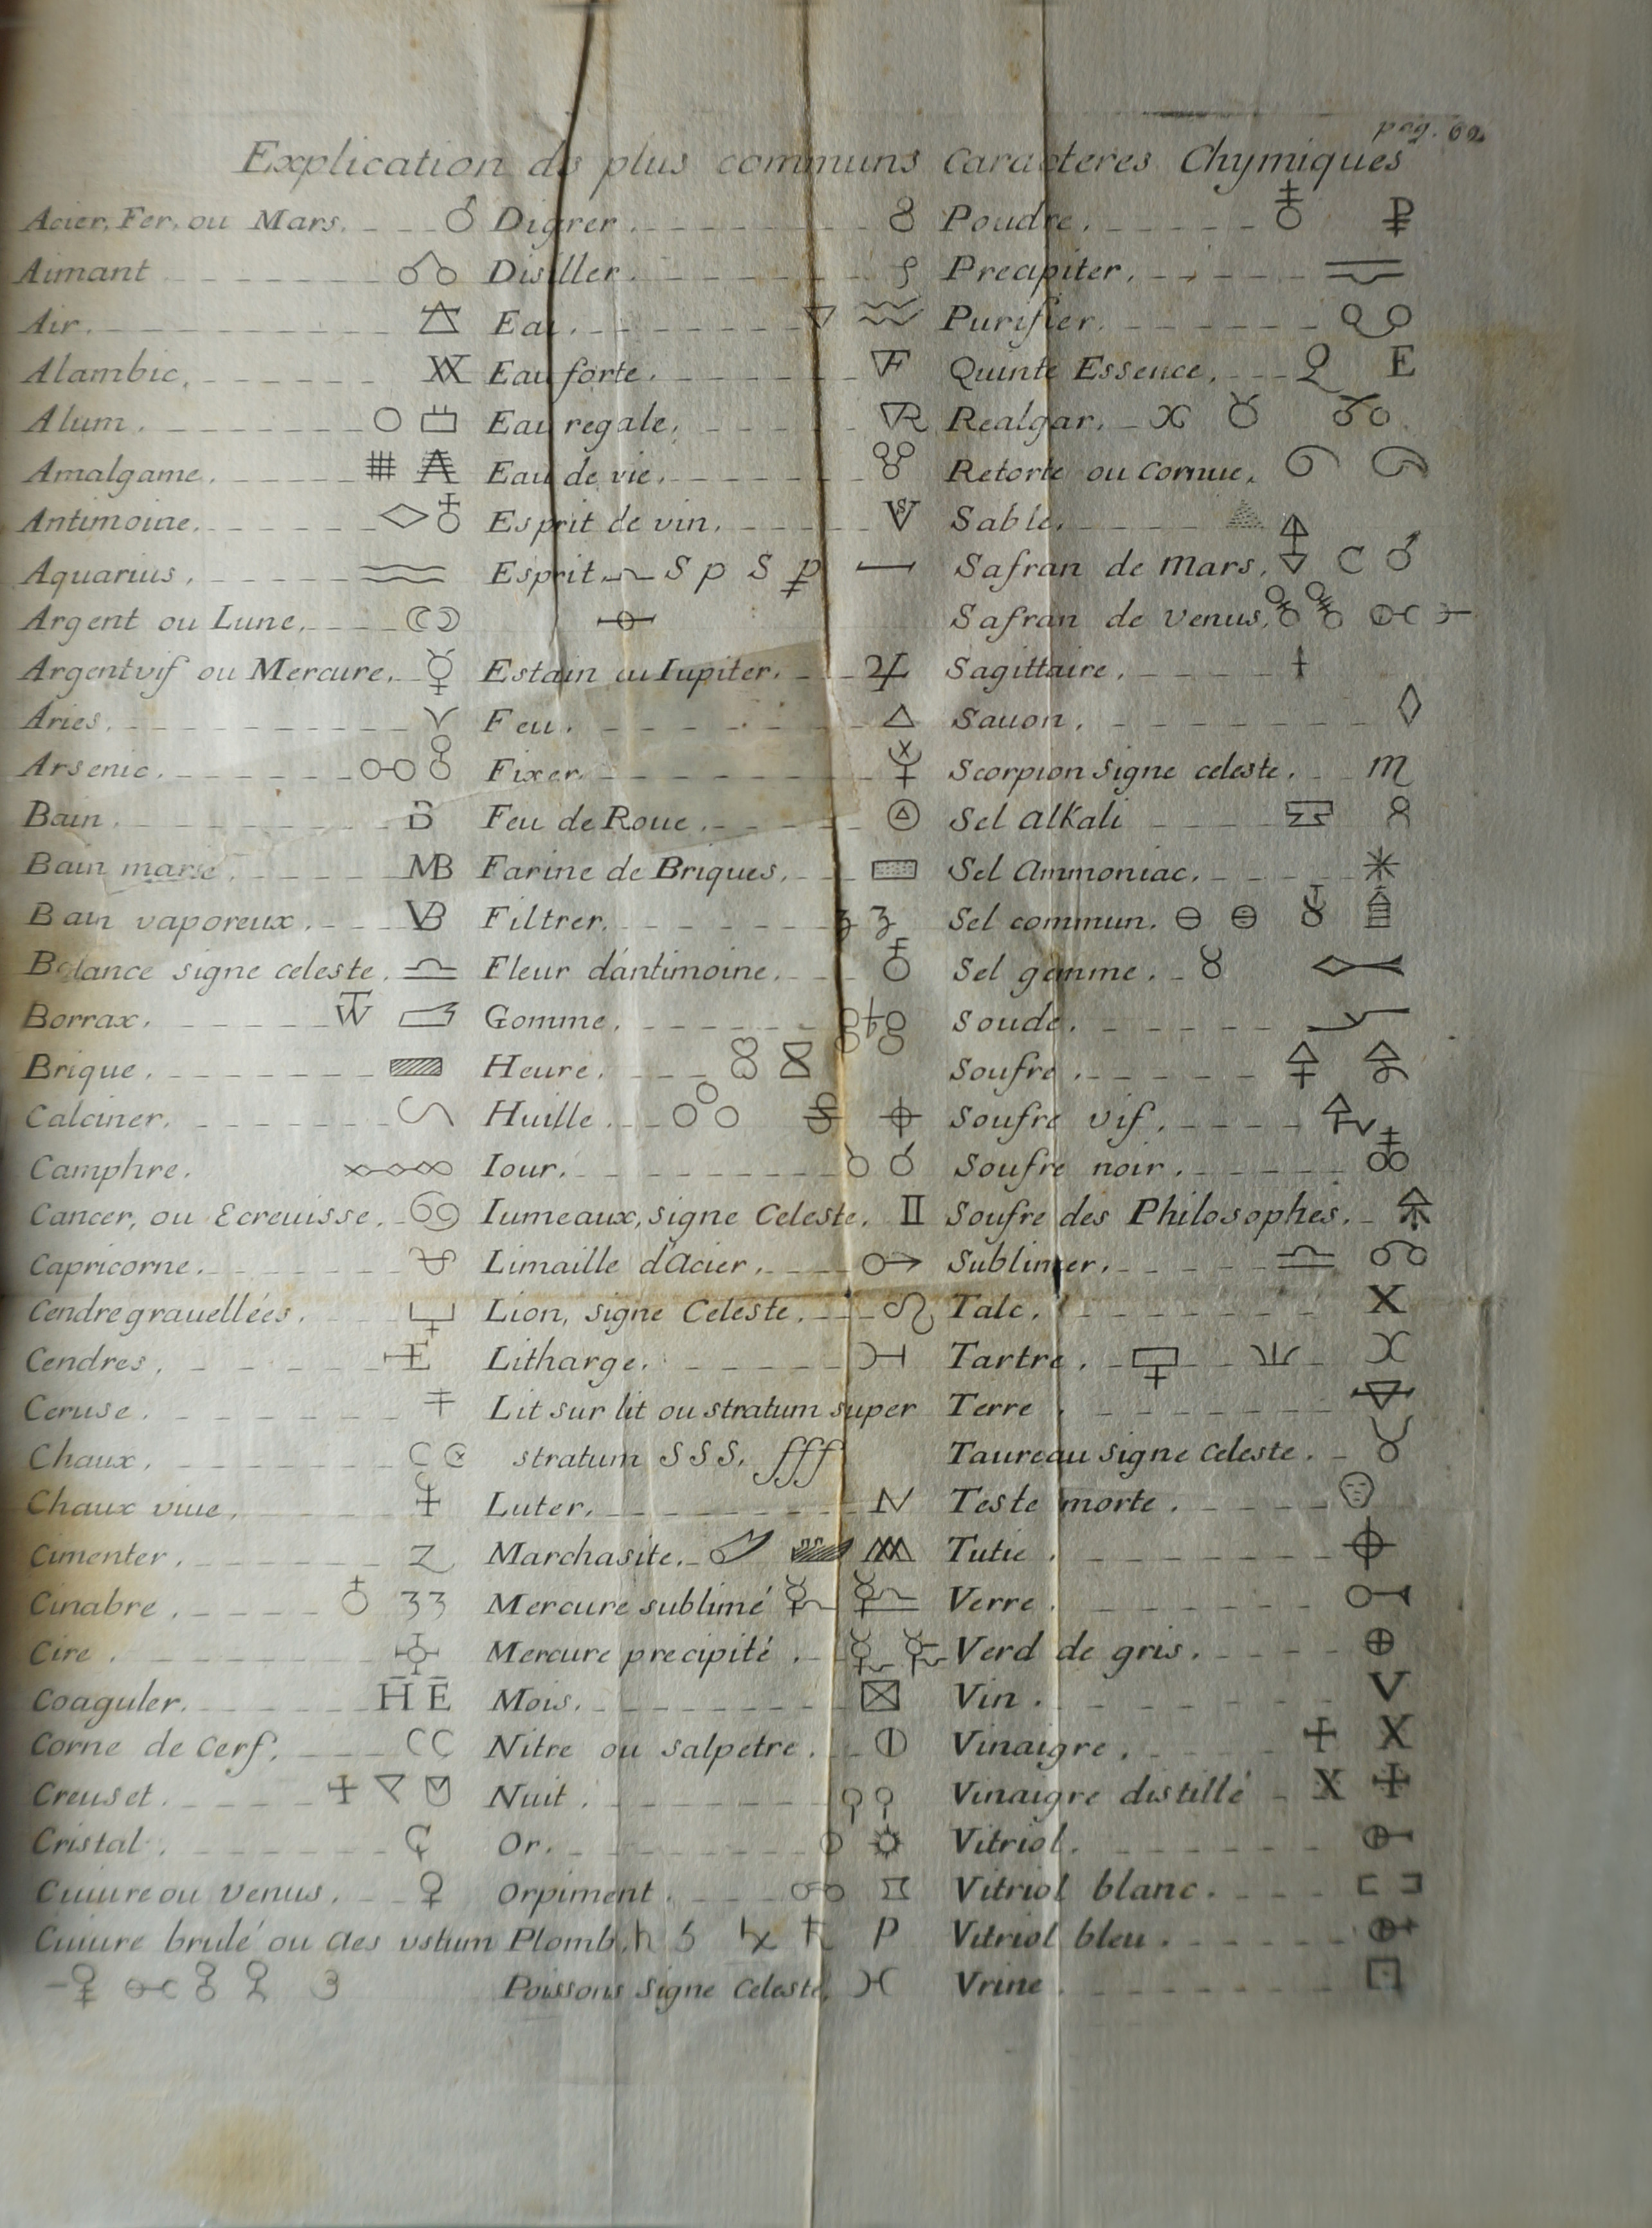 pag. 62
Explication des plus communs caracteres Chymiques
Acier, Fer, ou Mars.
Aimant
Air.
Alambic.
Alum.
Amalgame.
Antimoine.
Aquarius.
Argent ou Lune.
Argent vif ou Mercure.
Aries.
Arsenic.
Bain. B
Bain marie. MB
Bain vaporeux. VB
Balance signe celeste.
Borrax.
Brique.
Calciner.
Camphre.
Cancer, ou Ecreuisse.
Capricorne.
Cendre grauellées.
Cendres.
Ceruse.
Chaux.
Chaux viue.
Cimenter.
Cinabre.
Cire.
Coaguler. H E
Corne de Cerf. CC
Creuset.
Cristal.
Cuiure ou Venus.
Cuiure brulé ou aes vstum
Digerer.
Distiller.
Eau.
Eau forte.
Eau regale.
Eau de vie.
Esprit de vin.
Esprit. S p S
Estain ou Iupiter.
Feu.
Fixer.
Feu de Roue.
Farine de Briques.
Filtrer.
Fleur d'antimoine.
Gomme.
Heure.
Huille.
Iour.
Iumeaux, signe Celeste.
Limaille d'Acier.
Lion, signe Celeste.
Litharge.
Lit sur lit ou stratum super
stratum SSS. fff
Luter.
Marchasite.
Mercure sublimé
Mercure precipité.
Mois.
Nitre ou salpetre.
Nuit.
Or.
Orpiment.
Plomb.
Poissons signe Celeste.
Poudre.
Precipiter.
Purifier.
Quinte Essence. Q E
Realgar.
Retorte ou Cornue.
Sable.
Safran de Mars.
Safran de Venus.
Sagittaire.
Sauon.
Scorpion signe celeste.
Sel alkali
Sel Ammoniac.
Sel commun.
Sel gemme.
Soude.
Soufre.
Soufre vif.
Soufre noir.
Soufre des Philosophes.
Sublimer.
Talc. X
Tartre.
Terre
Taureau signe celeste.
Teste morte.
Tutie.
Verre.
Verd de gris.
Vin. V
Vinaigre. X
Vinaigre distillé X
Vitriol.
Vitriol blanc.
Vitriol bleu.
Vrine